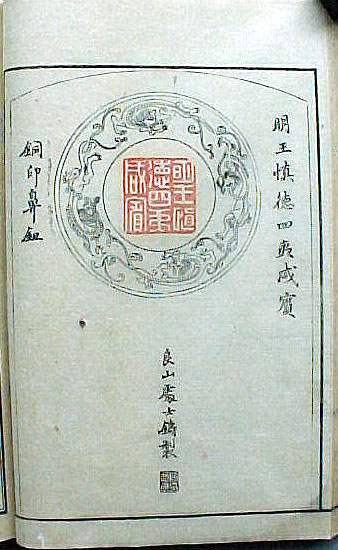 明王慎德四夷咸賓
明王慎
德四夷
咸賓
銅印鼻鈕
良山處士鑄製